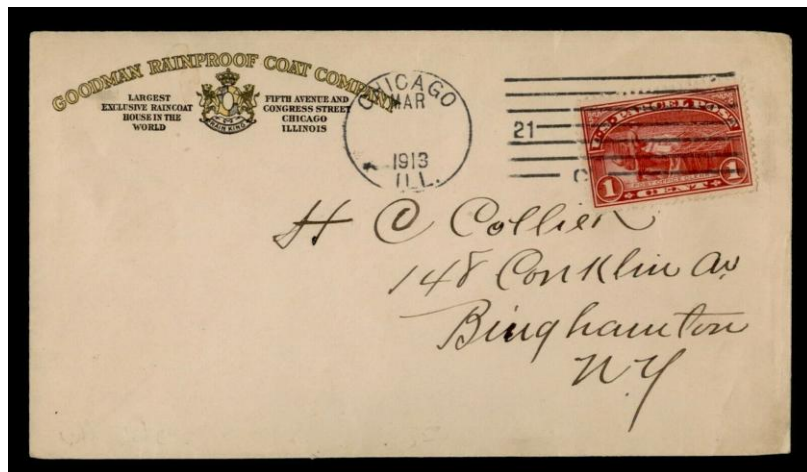 GOODMAN RAINPROOF COAT COMPANY
LARGEST
EXCLUSIVE RAINCOAT
HOUSE IN THE
WORLD
RAIN KING
FIFTH AVENUE AND
CONGRESS STREET
CHICAGO
ILLINOIS
CHICAGO
MAR
21
1913
ILL.
C
U.S. PARCEL POST
POST OFFICE CLERK
1 CENT 1
H C Collier
148 Conklin Av
Binghamton
N.Y